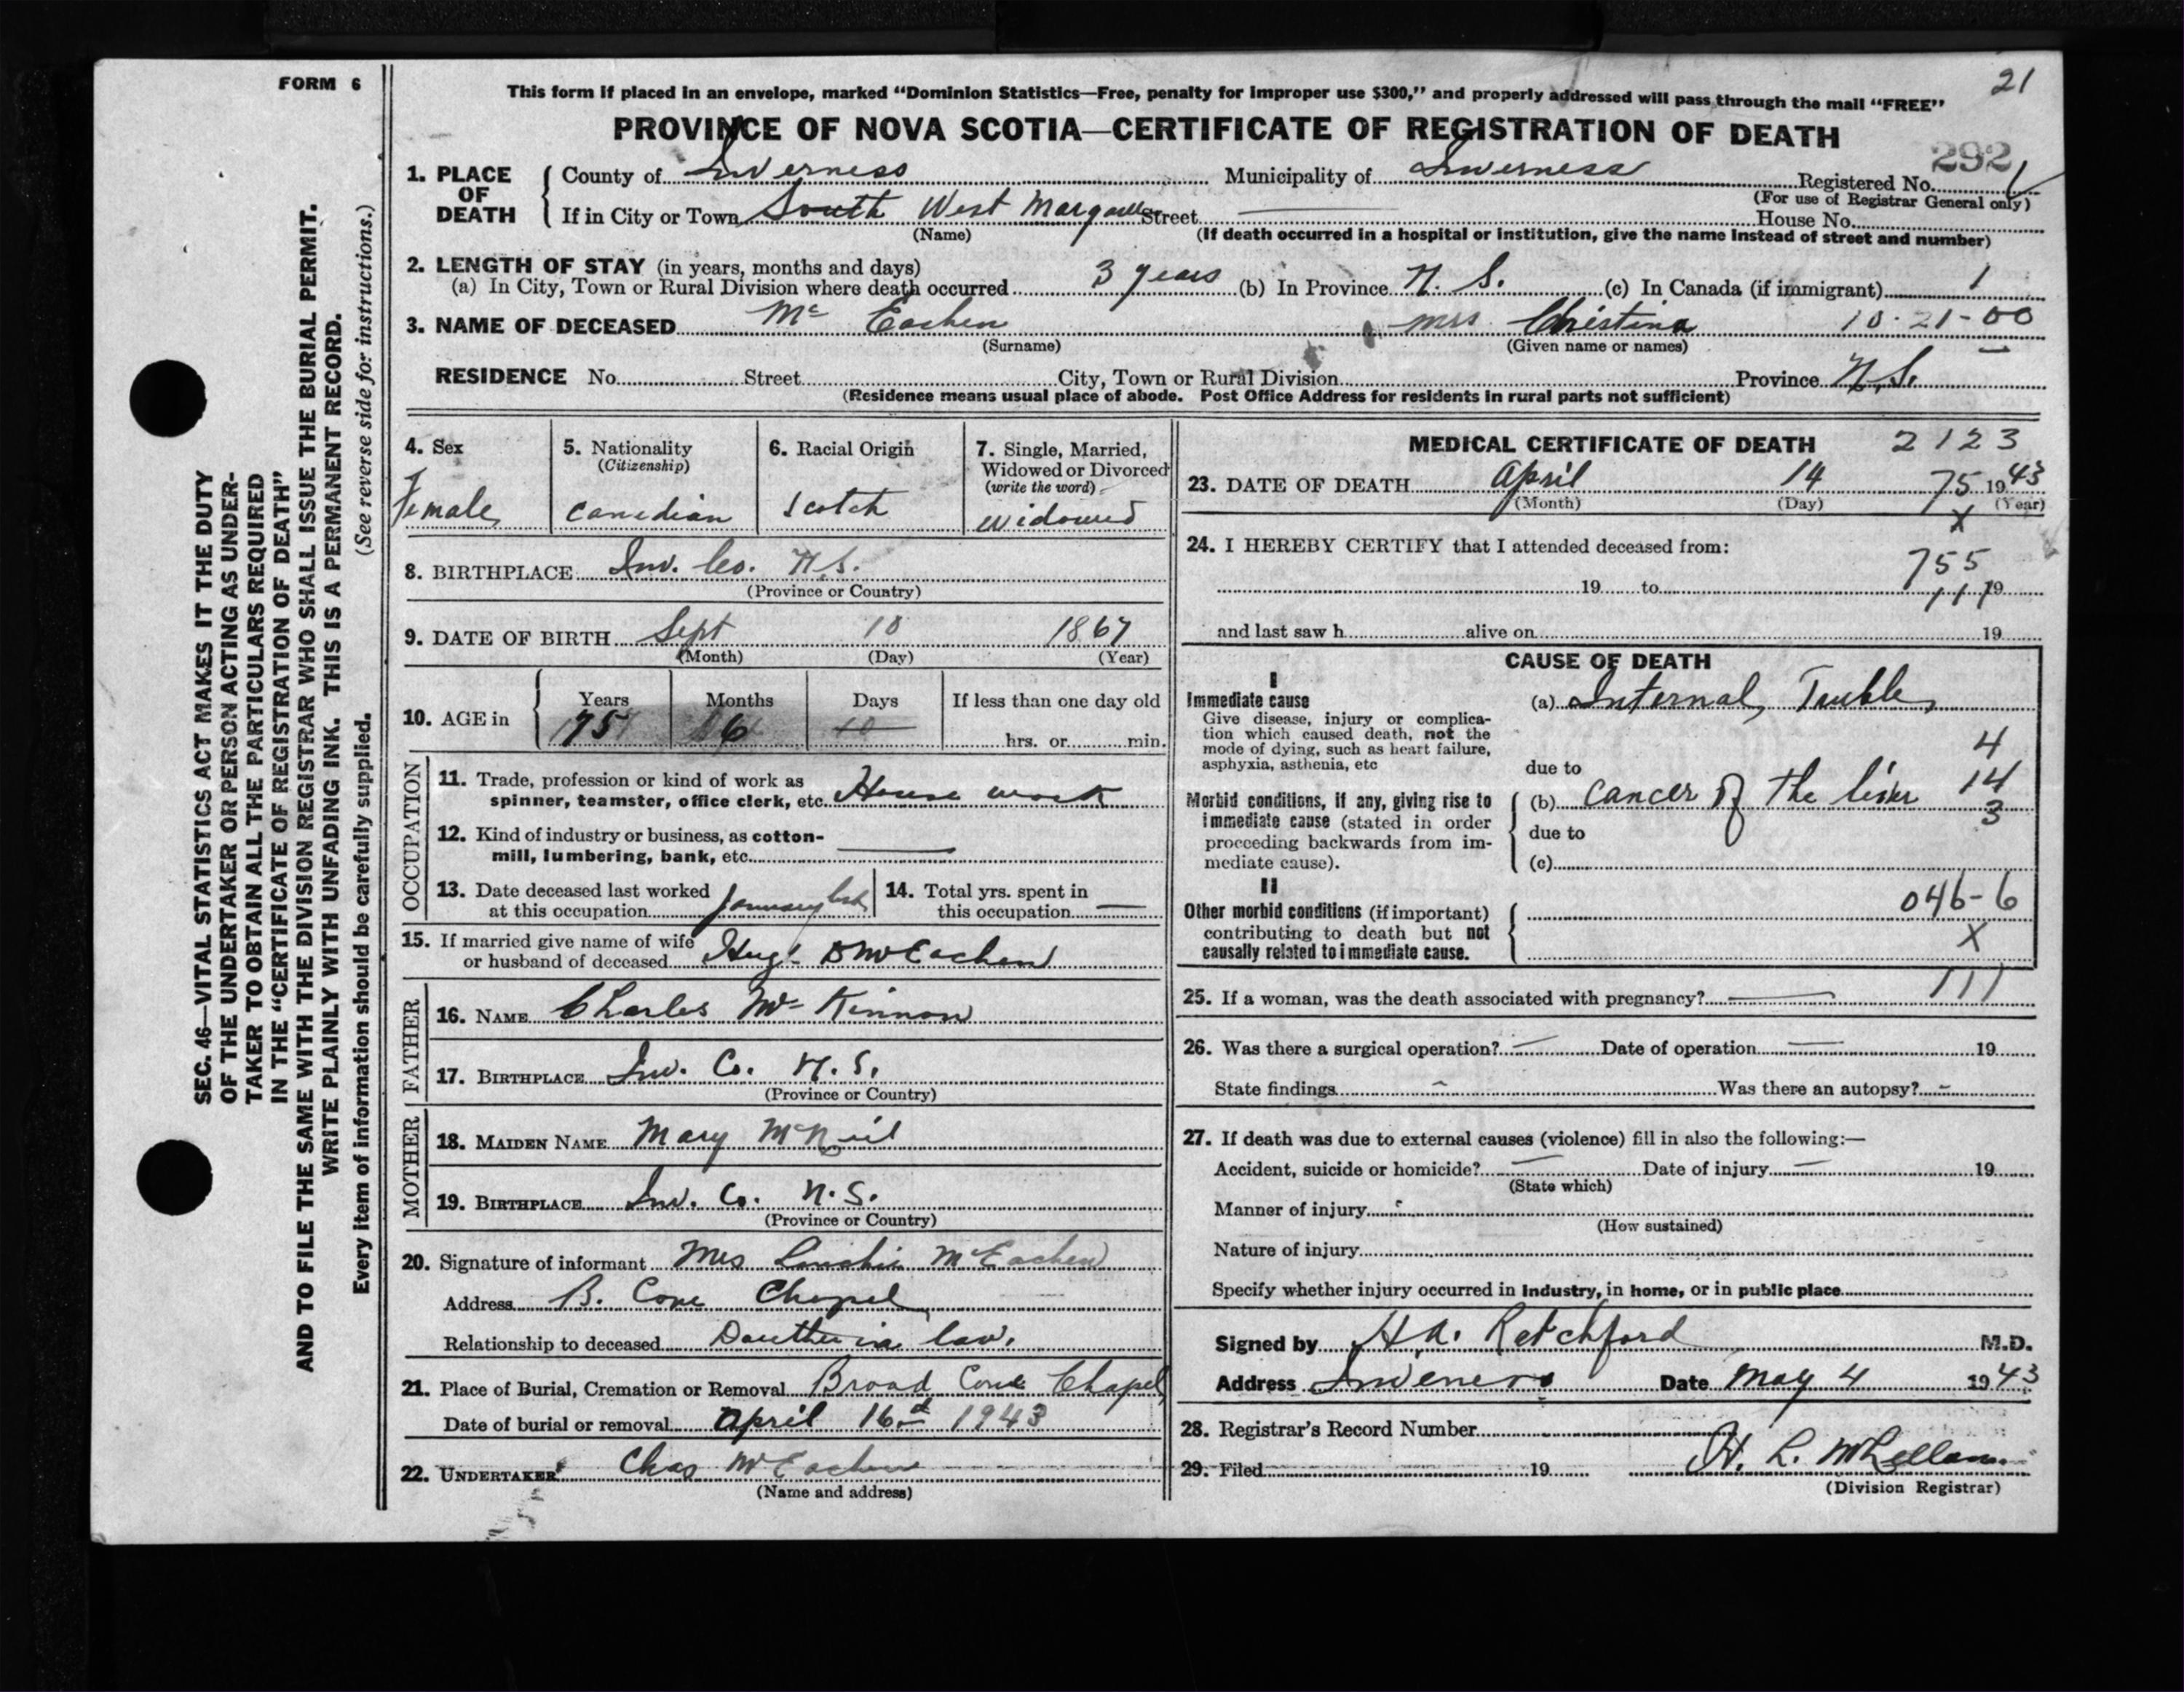 FORM 6
21
This form if placed in an envelope, marked “Dominion Statistics—Free, penalty for improper use $300,” and properly addressed will pass through the mail “FREE”
PROVINCE OF NOVA SCOTIA—CERTIFICATE OF REGISTRATION OF DEATH
292
1. PLACE OF DEATH
County of Inverness Municipality of Inverness Registered No.
(For use of Registrar General only)
If in City or Town South West Margaree Street — House No.
(Name) (If death occurred in a hospital or institution, give the name instead of street and number)
2. LENGTH OF STAY (in years, months and days)
(a) In City, Town or Rural Division where death occurred 3 years (b) In Province N. S. (c) In Canada (if immigrant) 1
3. NAME OF DECEASED Mc Eachen mrs Christina 10-21-00
(Surname) (Given name or names)
RESIDENCE No. Street City, Town or Rural Division Province N.S.
(Residence means usual place of abode. Post Office Address for residents in rural parts not sufficient)
4. Sex
Female
5. Nationality
(Citizenship)
Canadian
6. Racial Origin
Scotch
7. Single, Married,
Widowed or Divorced
(write the word)
widowed
8. BIRTHPLACE Inv. Co. N.S.
(Province or Country)
9. DATE OF BIRTH Sept 10 1867
(Month) (Day) (Year)
10. AGE in
Years Months Days If less than one day old
75 6 10 hrs. or min.
OCCUPATION
11. Trade, profession or kind of work as
spinner, teamster, office clerk, etc. House work
12. Kind of industry or business, as cotton-
mill, lumbering, bank, etc. —
13. Date deceased last worked
at this occupation January
14. Total yrs. spent in
this occupation —
15. If married give name of wife
or husband of deceased Hugh D McEachen
FATHER
16. NAME Charles Mc Kinnon
17. BIRTHPLACE Inv. Co. N.S.
(Province or Country)
MOTHER
18. MAIDEN NAME Mary McNeil
19. BIRTHPLACE Inv. Co. N.S.
(Province or Country)
20. Signature of informant Mrs McEachen
Address B. Cove Chapel
Relationship to deceased in law.
21. Place of Burial, Cremation or Removal Broad Cove Chapel
Date of burial or removal April 16 1943
22. UNDERTAKER Chas McEachen
(Name and address)
MEDICAL CERTIFICATE OF DEATH 2123
23. DATE OF DEATH April 14 75 1943
(Month) (Day) (Year)
X
24. I HEREBY CERTIFY that I attended deceased from:
755
19 to 19
111
and last saw h alive on 19
CAUSE OF DEATH
I
Immediate cause
Give disease, injury or complica-
tion which caused death, not the
mode of dying, such as heart failure,
asphyxia, asthenia, etc
(a) Internal Trouble
4
due to
Morbid conditions, if any, giving rise to
immediate cause (stated in order
proceeding backwards from im-
mediate cause).
(b) cancer of the liver 14
3
due to
(c)
II
Other morbid conditions (if important)
contributing to death but not
causally related to immediate cause.
046-6
X
25. If a woman, was the death associated with pregnancy? — 111
26. Was there a surgical operation? — Date of operation — 19
State findings — Was there an autopsy? —
27. If death was due to external causes (violence) fill in also the following:—
Accident, suicide or homicide? — Date of injury — 19
(State which)
Manner of injury
(How sustained)
Nature of injury
Specify whether injury occurred in industry, in home, or in public place
Signed by H.A. Ratchford M.D.
Address Inverness Date May 4 1943
28. Registrar's Record Number
29. Filed 19 H. L. McLellan
(Division Registrar)
SEC. 46—VITAL STATISTICS ACT MAKES IT THE DUTY
OF THE UNDERTAKER OR PERSON ACTING AS UNDER-
TAKER TO OBTAIN ALL THE PARTICULARS REQUIRED
IN THE “CERTIFICATE OF REGISTRATION OF DEATH”
AND TO FILE THE SAME WITH THE DIVISION REGISTRAR WHO SHALL ISSUE THE BURIAL PERMIT.
WRITE PLAINLY WITH UNFADING INK. THIS IS A PERMANENT RECORD.
Every item of information should be carefully supplied. (See reverse side for instructions.)